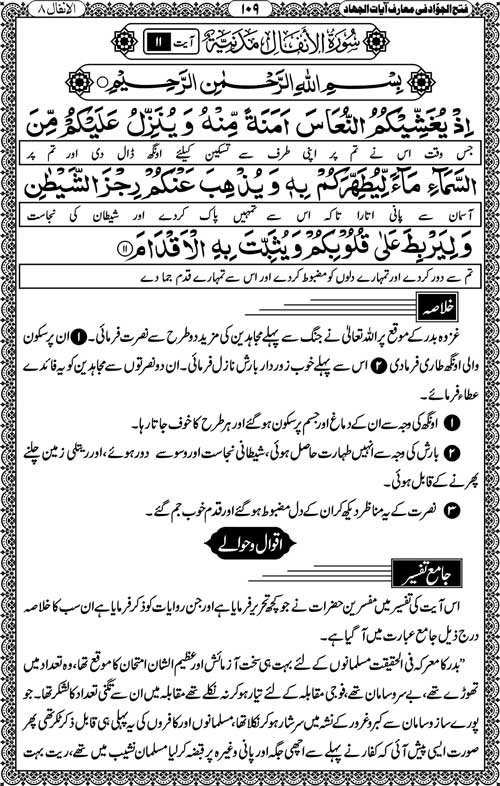 فتح الجوّاد فی معارف آیات الجهاد ١٠٩ الانفال ٨
سُورَةُ الْأَنْفَالِ مَدَنِيَّةٌ آیت ١١
بِسْمِ اللهِ الرَّحْمٰنِ الرَّحِيْمِ
اِذْ يُغَشِّيْكُمُ النُّعَاسَ اَمَنَةً مِّنْهُ وَيُنَزِّلُ عَلَيْكُمْ مِّنَ
جس وقت اس نے تم پر اپنی طرف سے تسکین کیلئے اونگھ ڈال دی اور تم پر
السَّمَآءِ مَآءً لِّيُطَهِّرَكُمْ بِهٖ وَيُذْهِبَ عَنْكُمْ رِجْزَ الشَّيْطٰنِ
آسمان سے پانی اتارا تاکہ اس سے تمہیں پاک کردے اور شیطان کی نجاست
وَلِيَرْبِطَ عَلٰى قُلُوْبِكُمْ وَيُثَبِّتَ بِهِ الْاَقْدَامَ ﴿١١﴾
تم سے دور کردے اور تمہارے دلوں کو مضبوط کردے اور اس سے تمہارے قدم جما دے
خلاصہ
غزوہ بدر کے موقع پر اللہ تعالیٰ نے جنگ سے پہلے مجاہدین کی مزید دو طرح سے نصرت فرمائی۔ ❶ ان پر سکون
والی اونگھ طاری فرمادی ❷ اس سے پہلے خوب زوردار بارش نازل فرمائی۔ ان دو نصرتوں سے مجاہدین کو یہ فائدے
عطاء فرمائے۔
❶ اونگھ کی وجہ سے ان کے دماغ اور جسم پر سکون ہوگئے اور ہر طرح کا خوف جاتا رہا۔
❷ بارش کی وجہ سے انہیں طہارت حاصل ہوئی، شیطانی نجاست اور وسوسے دور ہوئے، اور ریتلی زمین چلنے
پھرنے کے قابل ہوئی۔
❸ نصرت کے یہ مناظر دیکھ کر ان کے دل مضبوط ہوگئے اور قدم خوب جم گئے۔
اقوال و حوالے
جامع تفسیر
اس آیت کی تفسیر میں مفسرین حضرات نے جو کچھ تحریر فرمایا ہے اور جن روایات کو ذکر فرمایا ہے ان سب کا خلاصہ
درج ذیل جامع عبارت میں آگیا ہے۔
”بدر کا معرکہ فی الحقیقت مسلمانوں کے لئے بہت ہی سخت آزمائش اور عظیم الشان امتحان کا موقع تھا، وہ تعداد میں
تھوڑے تھے، بے سروسامان تھے، فوجی مقابلہ کے لئے تیار ہوکر نہ نکلے تھے مقابلہ میں ان سے تگنی تعداد کا لشکر تھا۔ جو
پورے سازوسامان سے کبر و غرور کے نشہ میں سرشار ہوکر نکلا تھا، مسلمانوں اور کافروں کی یہ پہلی ہی قابل ذکر ٹکر تھی پھر
صورت ایسی پیش آئی کہ کفار نے پہلے سے اچھی جگہ اور پانی وغیرہ پر قبضہ کرلیا مسلمان نشیب میں تھے، ریت بہت